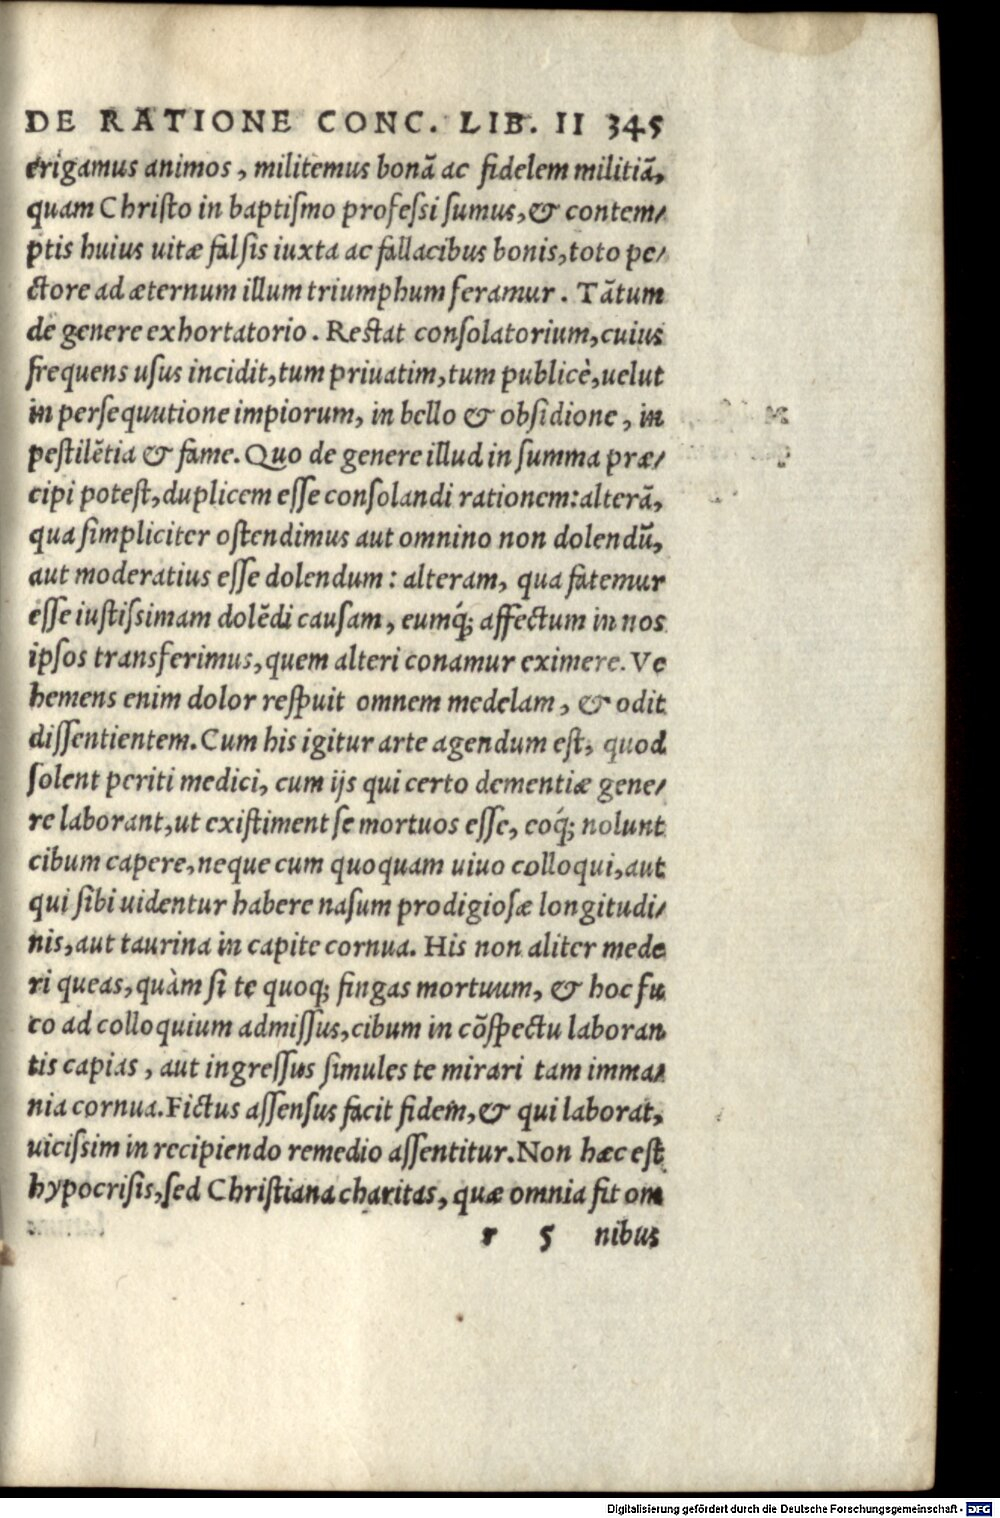 DE RATIONE CONC. LIB. II 345
erigamus animos, militemus bonā ac fidelem militiā,
quam Christo in baptismo professi sumus, & contem/
ptis huius uitæ falsis iuxta ac fallacibus bonis, toto pe/
ctore ad æternum illum triumphum feramur. Tātum
de genere exhortatorio. Restat consolatorium, cuius
frequens usus incidit, tum priuatim, tum publicè, uelut
in persequutione impiorum, in bello & obsidione, in
pestilētia & fame. Quo de genere illud in summa præ/
cipi potest, duplicem esse consolandi rationem: alterā,
qua simpliciter ostendimus aut omnino non dolendū,
aut moderatius esse dolendum: alteram, qua fatemur
esse iustissimam dolēdi causam, eumq́; affectum in nos
ipsos transferimus, quem alteri conamur eximere. Ve
hemens enim dolor respuit omnem medelam, & odit
dissentientem. Cum his igitur arte agendum est, quod
solent periti medici, cum ijs qui certo dementiæ gene/
re laborant, ut existiment se mortuos esse, eoq́; nolunt
cibum capere, neque cum quoquam uiuo colloqui, aut
qui sibi uidentur habere nasum prodigiosæ longitudi/
nis, aut taurina in capite cornua. His non aliter mede
ri queas, quàm si te quoq; fingas mortuum, & hoc fu
co ad colloquium admissus, cibum in cōspectu laboran
tis capias, aut ingressus simules te mirari tam imma/
nia cornua. Fictus assensus facit fidem, & qui laborat,
uicissim in recipiendo remedio assentitur. Non hæc est
hypocrisis, sed Christiana charitas, quæ omnia fit om
r 5 nibus
Digitalisierung gefördert durch die Deutsche Forschungsgemeinschaft - DFG